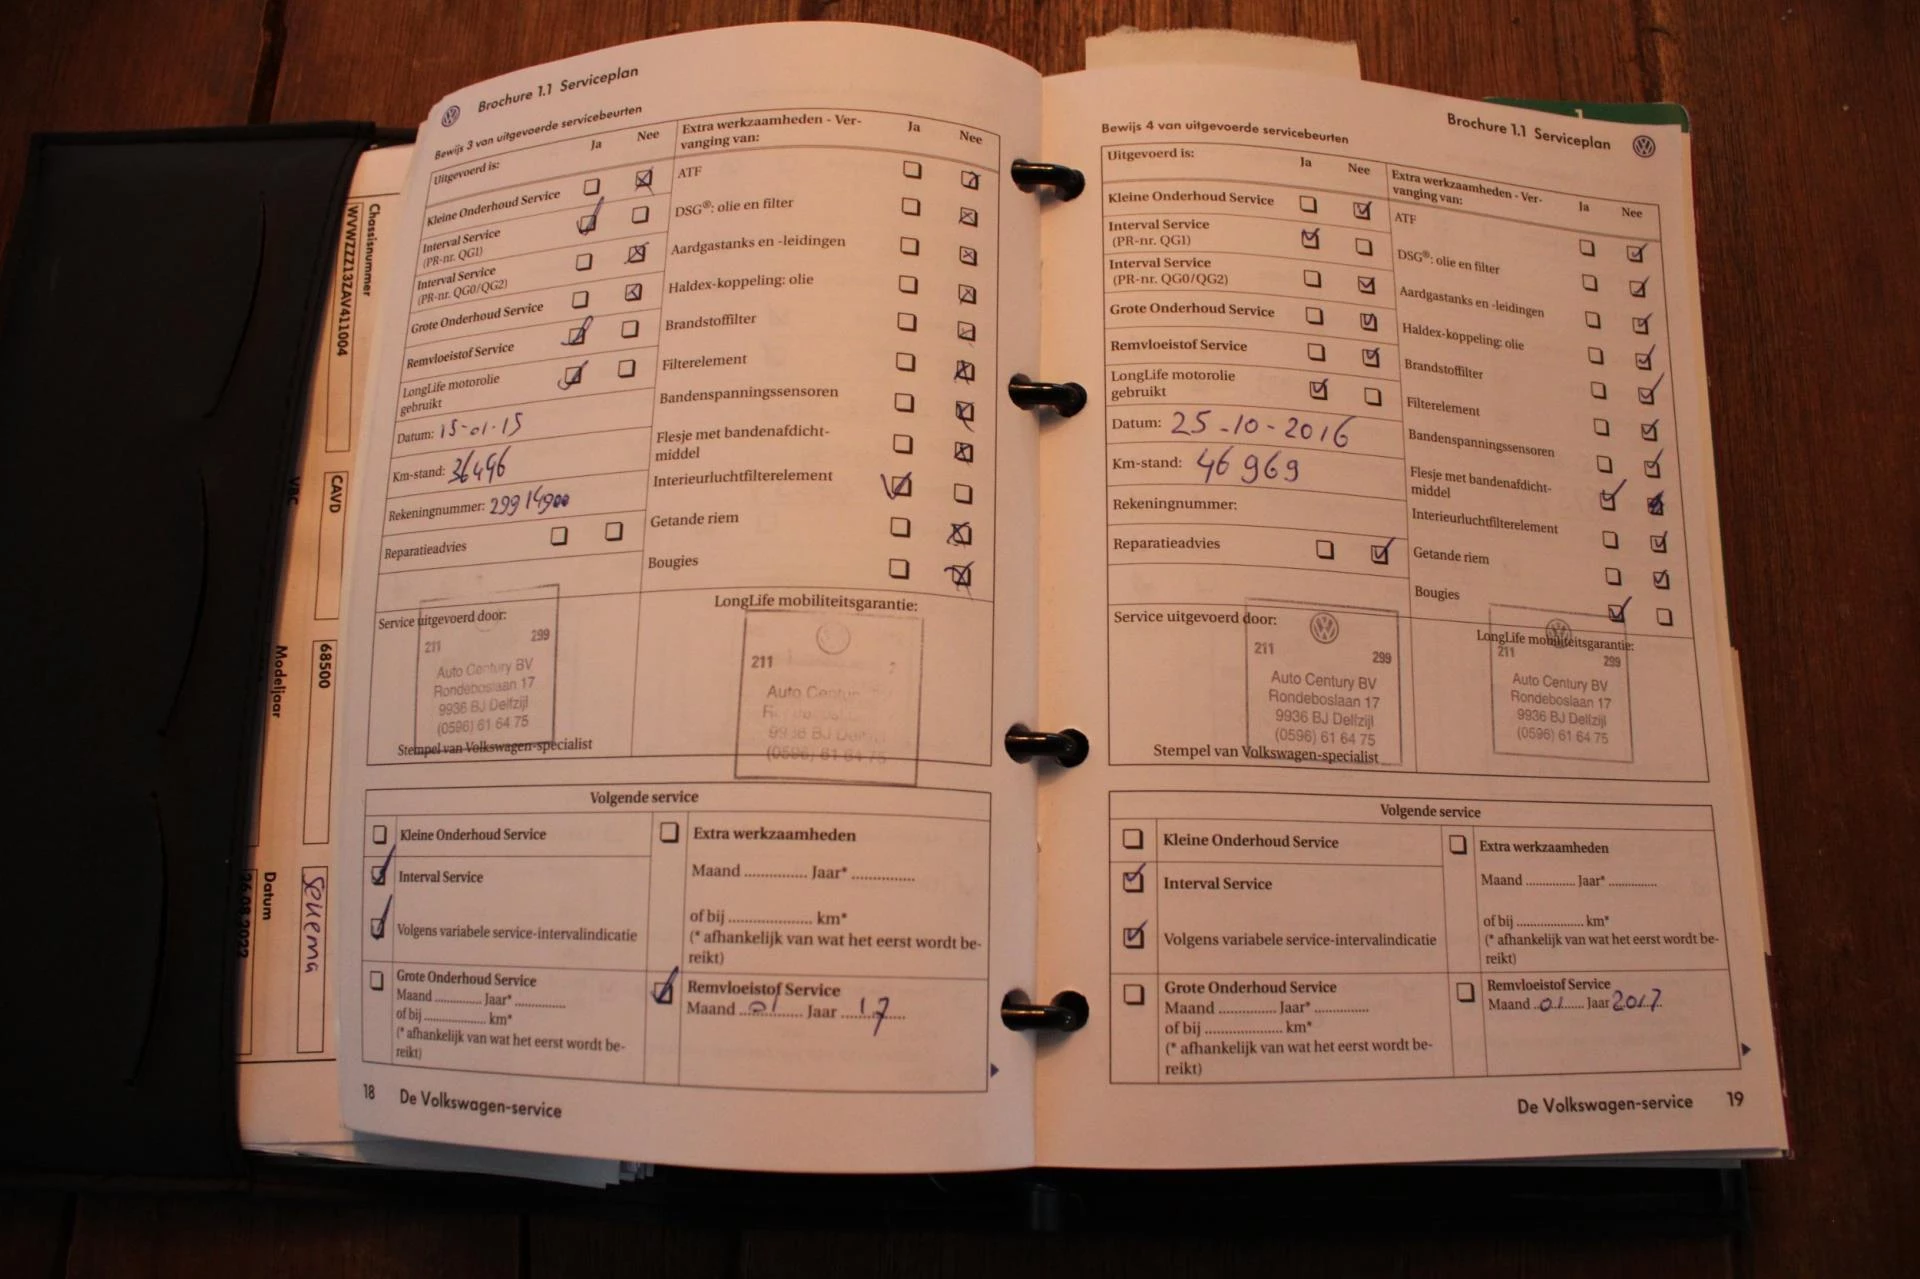 Chassisnummer
WVWZZZ13ZAV411004
CAVD
VBC
68500
Modeljaar
Datum
26.08.2022
Brochure 1.1 Serviceplan
Bewijs 3 van uitgevoerde servicebeurten
Uitgevoerd is:
Ja
Nee
Kleine Onderhoud Service
Interval Service
(PR-nr. QG1)
Interval Service
(PR-nr. QG0/QG2)
Grote Onderhoud Service
Remvloeistof Service
LongLife motorolie
gebruikt
Datum: 15-01-15
Km-stand: 36496
Rekeningnummer: 29914900
Reparatieadvies
Extra werkzaamheden - Ver-
vanging van:
Ja
Nee
ATF
DSG®: olie en filter
Aardgastanks en -leidingen
Haldex-koppeling: olie
Brandstoffilter
Filterelement
Bandenspanningssensoren
Flesje met bandenafdicht-
middel
Interieurluchtfilterelement
Getande riem
Bougies
Service uitgevoerd door:
211
299
Auto Century BV
Rondeboslaan 17
9936 BJ Delfzijl
(0596) 61 64 75
Stempel van Volkswagen-specialist
LongLife mobiliteitsgarantie:
211
Auto
9936 BJ
(0596) 61 64 75
Volgende service
Kleine Onderhoud Service
Interval Service
Volgens variabele service-intervalindicatie
Grote Onderhoud Service
Maand .............. Jaar* ...............
of bij .................. km*
(* afhankelijk van wat het eerst wordt be-
reikt)
Extra werkzaamheden
Maand .............. Jaar* ...............
of bij .................... km*
(* afhankelijk van wat het eerst wordt be-
reikt)
Remvloeistof Service
Maand 01 Jaar 17
18
De Volkswagen-service
Brochure 1.1 Serviceplan
Bewijs 4 van uitgevoerde servicebeurten
Uitgevoerd is:
Ja
Nee
Kleine Onderhoud Service
Interval Service
(PR-nr. QG1)
Interval Service
(PR-nr. QG0/QG2)
Grote Onderhoud Service
Remvloeistof Service
LongLife motorolie
gebruikt
Datum: 25-10-2016
Km-stand: 46969
Rekeningnummer:
Reparatieadvies
Extra werkzaamheden - Ver-
vanging van:
Ja
Nee
ATF
DSG®: olie en filter
Aardgastanks en -leidingen
Haldex-koppeling: olie
Brandstoffilter
Filterelement
Bandenspanningssensoren
Flesje met bandenafdicht-
middel
Interieurluchtfilterelement
Getande riem
Bougies
Service uitgevoerd door:
211
299
Auto Century BV
Rondeboslaan 17
9936 BJ Delfzijl
(0596) 61 64 75
Stempel van Volkswagen-specialist
LongLife mobiliteitsgarantie:
211
299
Auto Century BV
Rondeboslaan 17
9936 BJ Delfzijl
(0596) 61 64 75
Volgende service
Kleine Onderhoud Service
Interval Service
Volgens variabele service-intervalindicatie
Grote Onderhoud Service
Maand .............. Jaar* ...............
of bij .................... km*
(* afhankelijk van wat het eerst wordt be-
reikt)
Extra werkzaamheden
Maand .............. Jaar* ..............
of bij .................... km*
(* afhankelijk van wat het eerst wordt be-
reikt)
Remvloeistof Service
Maand 01 Jaar 2017
De Volkswagen-service
19